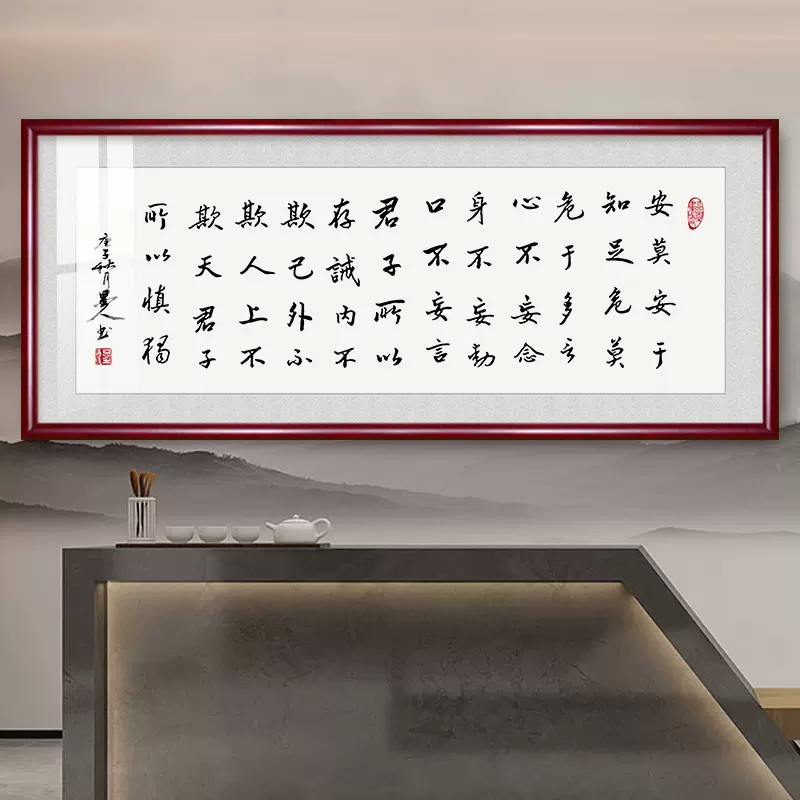 安莫安于
知足危莫
危于多言
心不妄念
身不妄動
口不妄言
君子所以
存誠内不
欺己外不
欺人上不
欺天君子
所以慎獨
庚子秋月人书